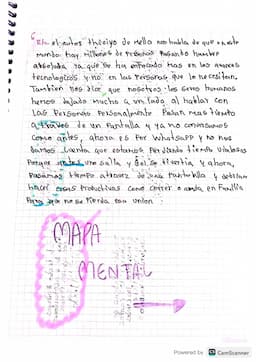 el autor thaciyo de mella nos habla de que en este
mundo hay millones de Pasando hambre
absoluta ya que se ha enfocado mas en los avances
tecnologicos y no en las Personas que lo necesitan,
Tambien nos dice que nosotros los seres humanos
hemos dejado mucho a un lado al hablar con
las Personas Personalmente Pasan mas tiempo
a traves de un Pantalla y ya no conversamos
como antes, ahora es Por Whatsapp y no nos
damos cuenta que estamos Perdiendo tiempo valioso
Porque uno salia y se divertia y ahora,
Pasamos tiempo atravez de una Pantalla y
hacer cosas Productivas como correr o en Familia
Para que no se Pierda esa union
MAPA
MENTAL
Powered by CS CamScanner